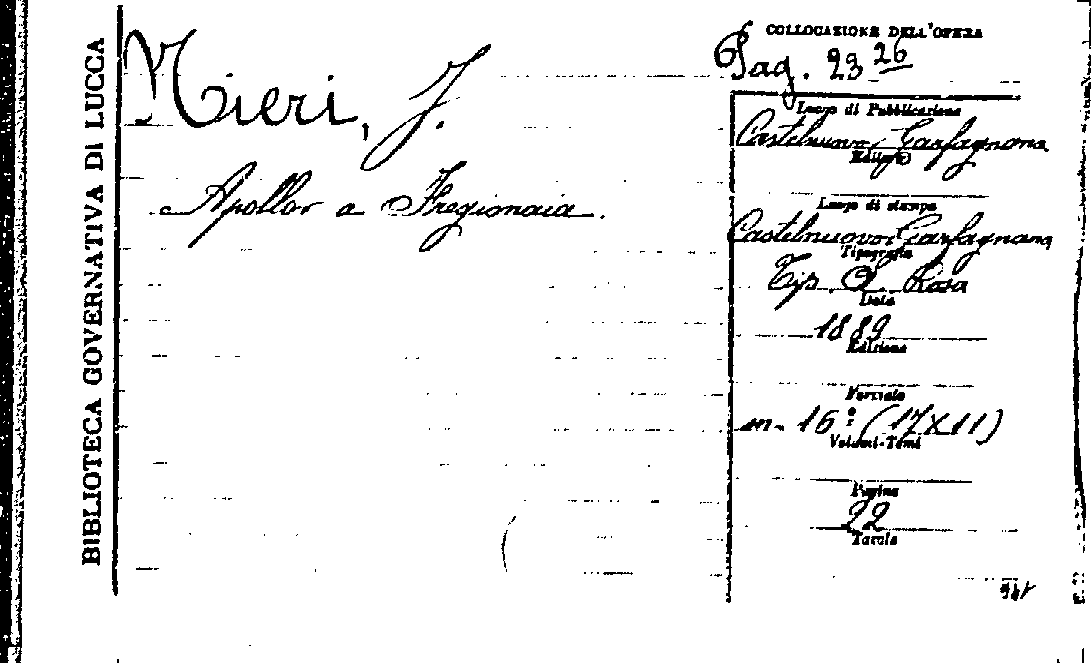 BIBLIOTECA GOVERNATIVA DI LUCCA
Nieri, J.
Apollo a Fregionaia.
COLLOCAZIONE DELL'OPERA
Pag. 23 26
Luogo di Pubblicazione
Castelnuovo Garfagnana
Editore
Luogo di stampa
Castelnuovo Garfagnana
Tipografia
Tip. A. Rosa
Data
1889
Edizione
Formato
in-16° (17X11)
Volumi-Tomi
Pagine
22
Tavole